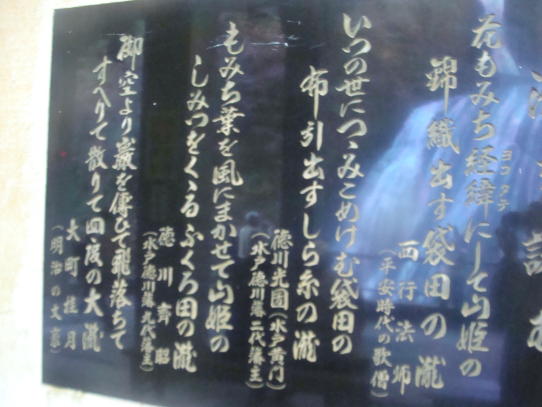 花もみち経緯にして山姫の
ヨコタテ
錦織出す袋田の瀧
西行法師
(平安時代の歌僧)
いつの世につゝみこめけむ袋田の
布引出すしら糸の瀧
徳川光圀(水戸黄門)
(水戸徳川藩二代藩主)
もみち葉を風にまかせて山姫の
しみつをくゝるふくろ田の瀧
徳川斉昭
(水戸徳川藩九代藩主)
御空より巌を傳ひて飛落ちて
すへりて散りて四度の大瀧
大町桂月
(明治の文豪)